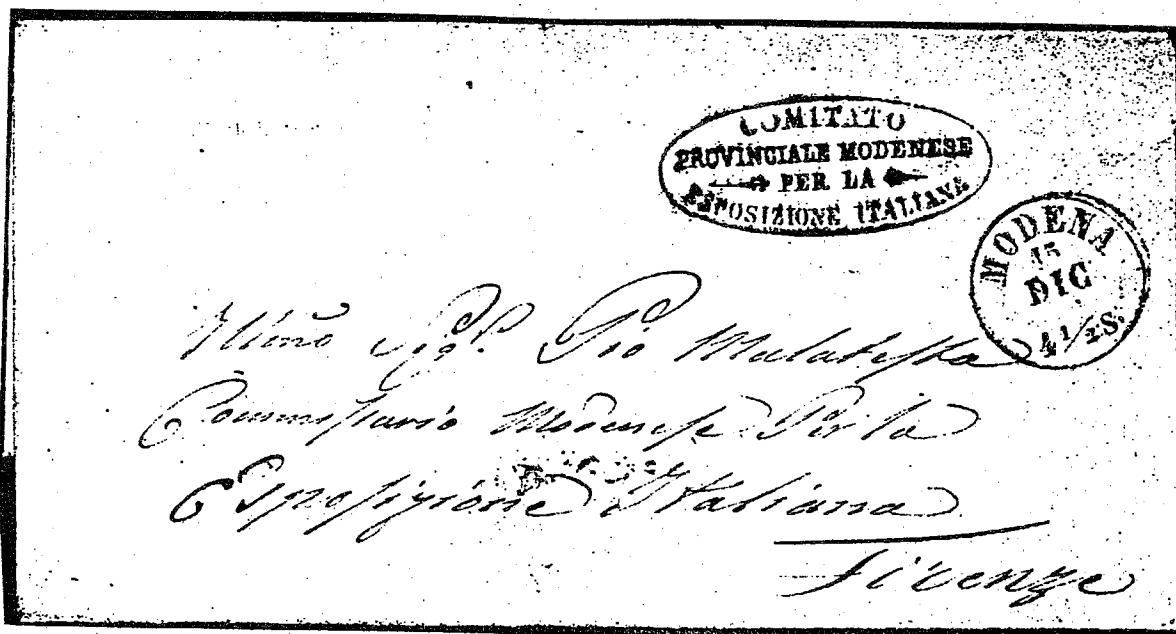 COMITATO
PROVINCIALE MODENESE
PER LA
ESPOSIZIONE ITALIANA
MODENA
15
DIC
4 1/2 S.
Illmo Sigr. Pio Malatesta
Commissario Modenese Per la
Esposizione Italiana
Firenze